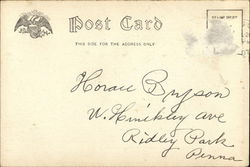 Post Card
THIS SIDE FOR THE ADDRESS ONLY
Horace Bryson
W. Hinckley Ave
Ridley Park
Penna